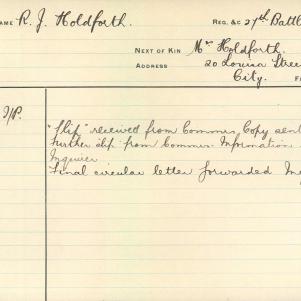 NAME R. J. Holdforth. REG. &c 27th Battl
NEXT OF KIN Mrs Holdforth.
ADDRESS 20 Louisa Stree
City.
"Slip" received from Commrs Copy sent
Further slip from Commrs. Information
Inquirer
Final circular letter forwarded